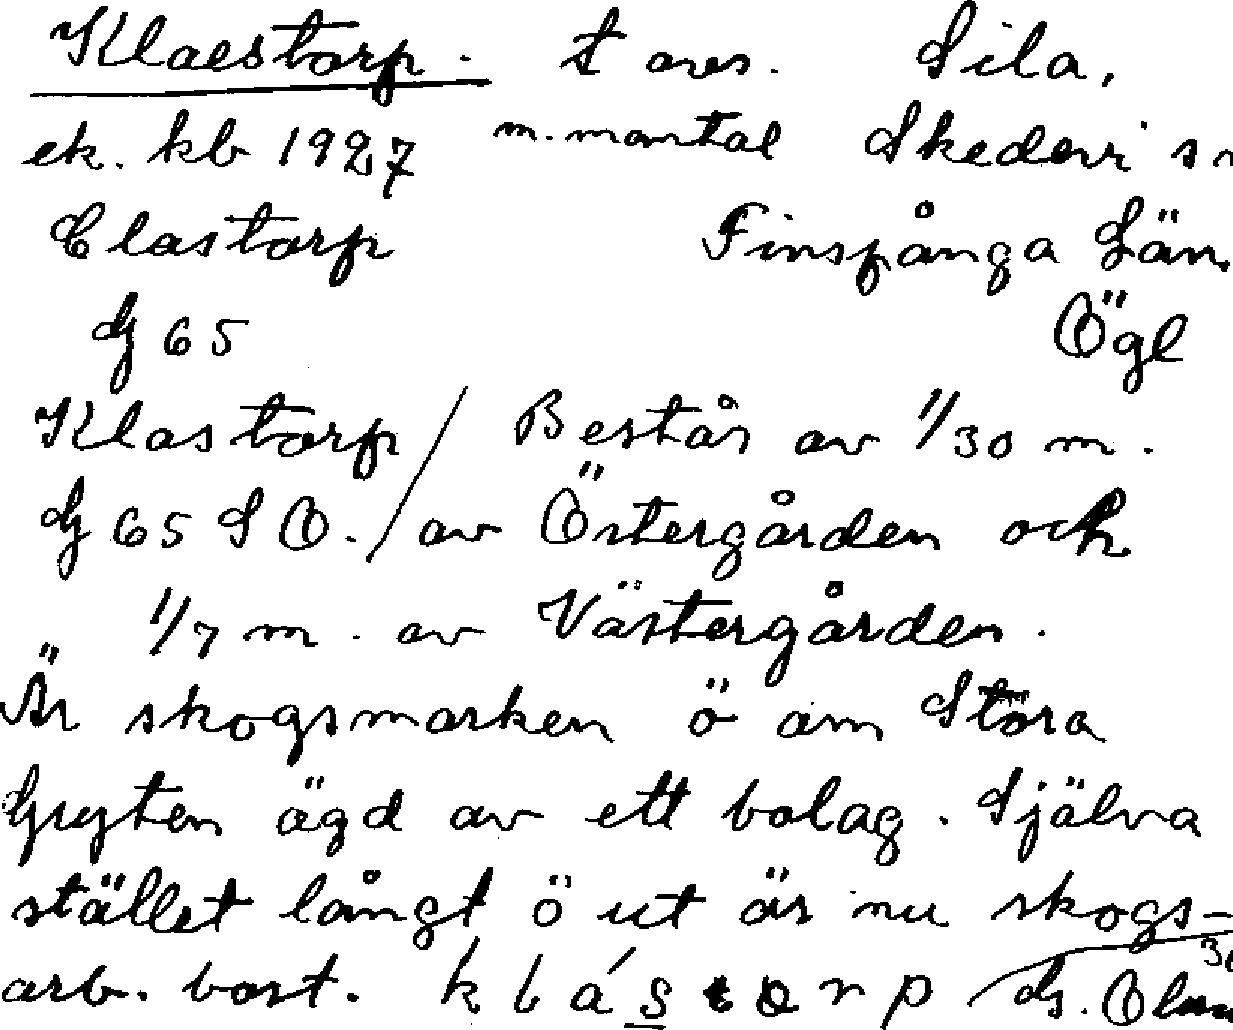 Klaestorp. t ores. Sila,
ek. kb 1927 m. mantal Skedevi sn
Clastorp Finspånga Län.
G 65 Ögl
Klastorp / Består av 1/30 m.
G 65 S O. / av Östergården och
1/7 m. av Västergården.
Är skogsmarken ö om Stora
Gryten ägd av ett bolag. Själva
stället långt ö ut är nu skogs-
arb. bost. k l á s t o r p